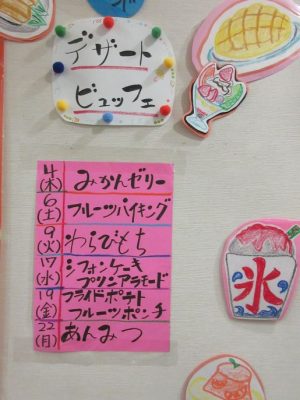 デザート
ビュッフェ
4(木) みかんゼリー
6(土) フルーツバイキング
9(火) わらびもち
17(水) シフォンケーキ
プリンアラモード
19(金) フライドポテト
フルーツポンチ
22(月) あんみつ
氷